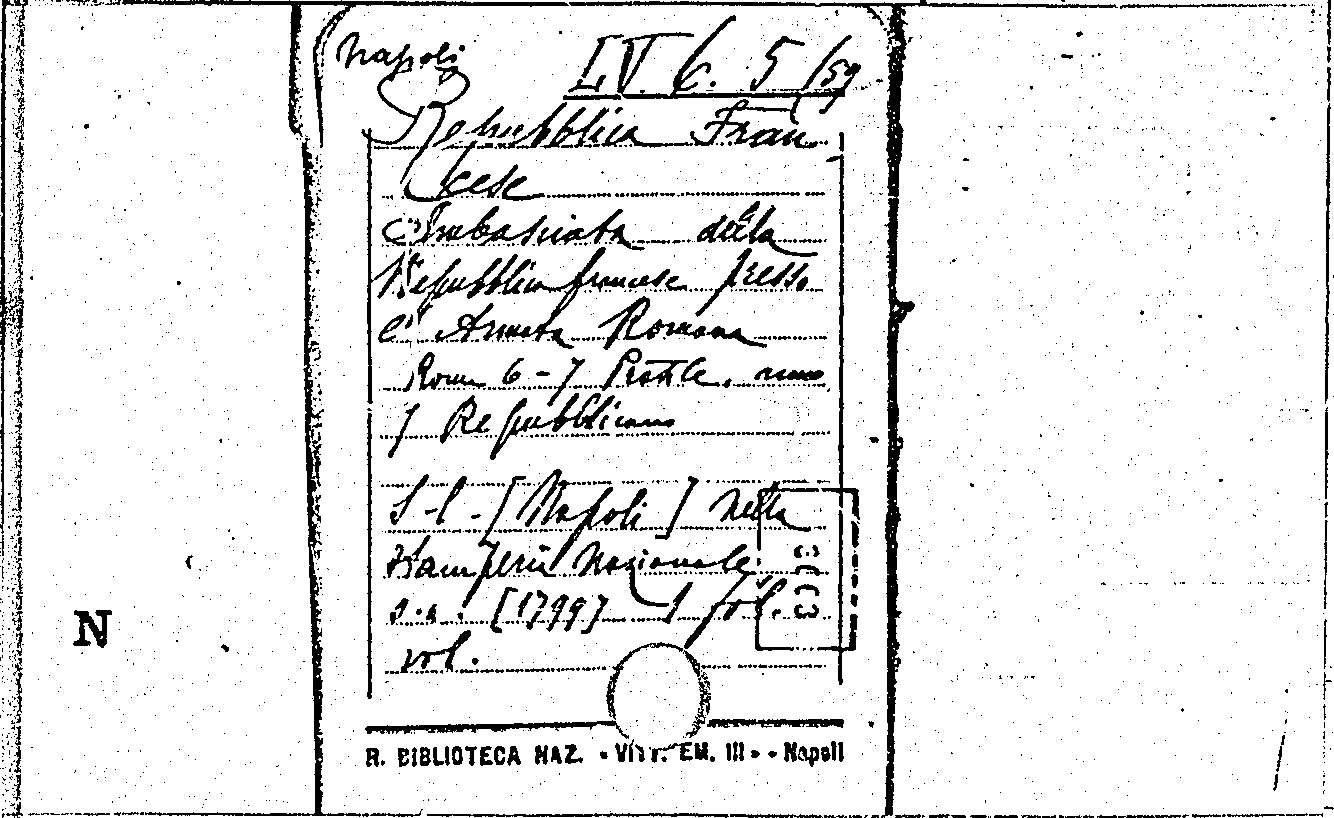 Napoli
LV. 6. 5 /59
Repubblica Fran
cese
Ambasciata della
Repubblica francese presso
l' Armata Romana
Roma 6-7 Pratile, anno
7 Repubblicano
S.l. [Napoli] nella
Stamperia Nazionale
s.a. [1799] 1 fol.
vol.
N
R. BIBLIOTECA NAZ. "VITT. EM. III" - Napoli